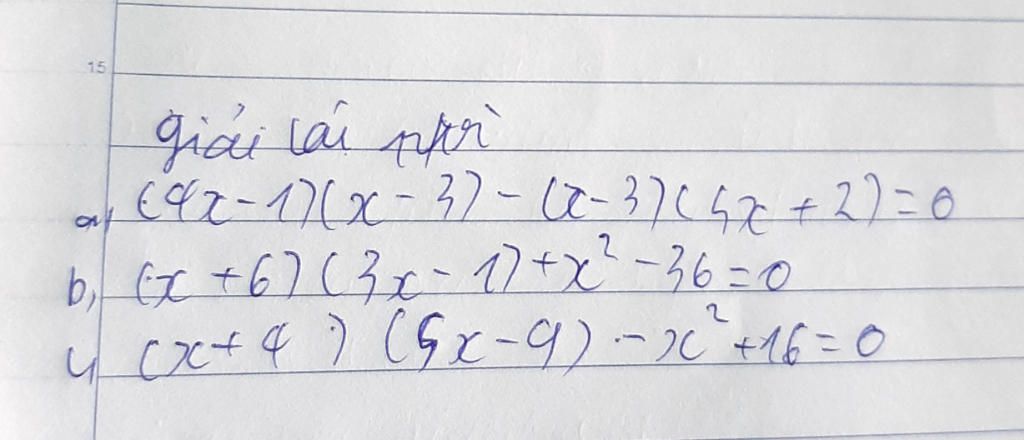 15
giải các ptri
a, (4x-1)(x-3)-(x-3)(5x+2)=0
b, (x+6)(3x-1)+x²-36=0
c, (x+4)(5x-9)-x²+16=0